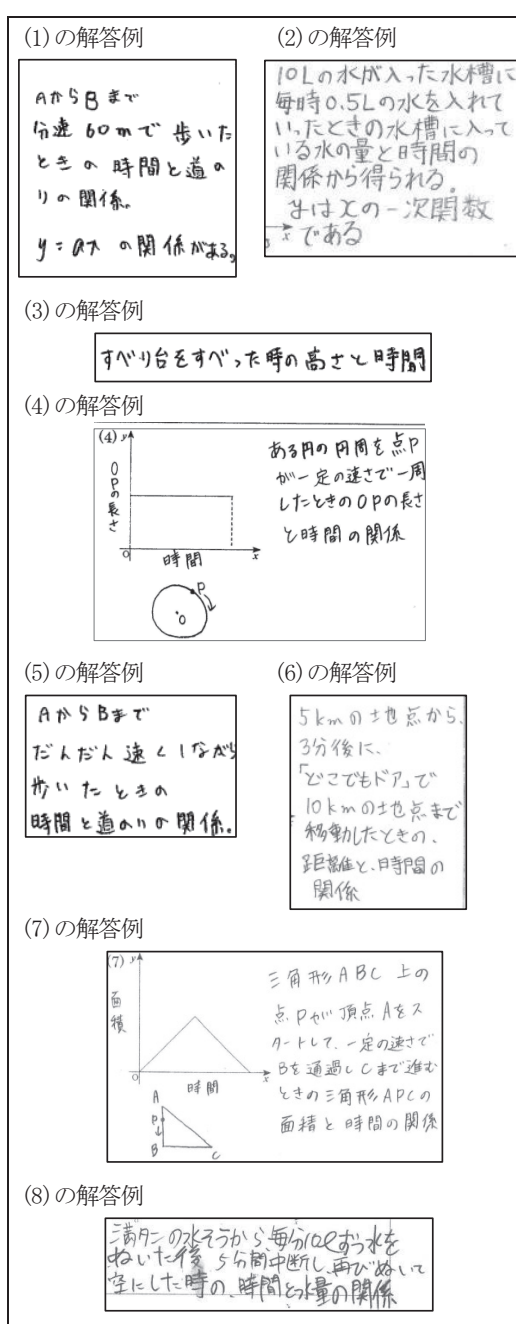 (1)の解答例
AからBまで
分速60mで歩いた
ときの時間と道の
りの関係。
y=axの関係がある。
(2)の解答例
10Lの水が入った水槽に
毎時0.5Lの水を入れて
いったときの水槽に入って
いる水の量と時間の
関係から得られる。
yはxの一次関数
x
である
(3)の解答例
すべり台をすべった時の高さと時間
(4)の解答例
(4) y
OPの長さ
O
時間
x
P
O
ある円の円周を点P
が一定の速さで一周
したときのOPの長さ
と時間の関係
(5)の解答例
AからBまで
だんだん速くしながら
歩いたときの
時間と道のりの関係。
(6)の解答例
5kmの地点から、
3分後に、
「どこでもドア」で
10kmの地点まで
移動したときの、
距離と、時間の
関係
(7)の解答例
(7) y
面積
O
時間
x
A
P
B
C
三角形ABC上の
点Pが頂点Aをス
タートして、一定の速さで
Bを通過しCまで進む
ときの三角形APCの
面積と時間の関係
(8)の解答例
満タンの水そうから毎分10ℓずつ水を
ぬいた後、5分間中断し、再びぬいて
空にした時の、時間と水量の関係